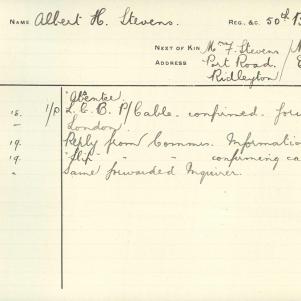 NAME Albert H. Stevens. REG. &C. 50th
NEXT OF KIN Mrs F. Stevens
ADDRESS Port Road.
Ridleyton
"Absentee"
18. L.G.B. P/Cable. confirmed.
London.
19. Reply from Commrs. Informatio
19. "Slip" " " confirming ca
" Same forwarded Inquirer.